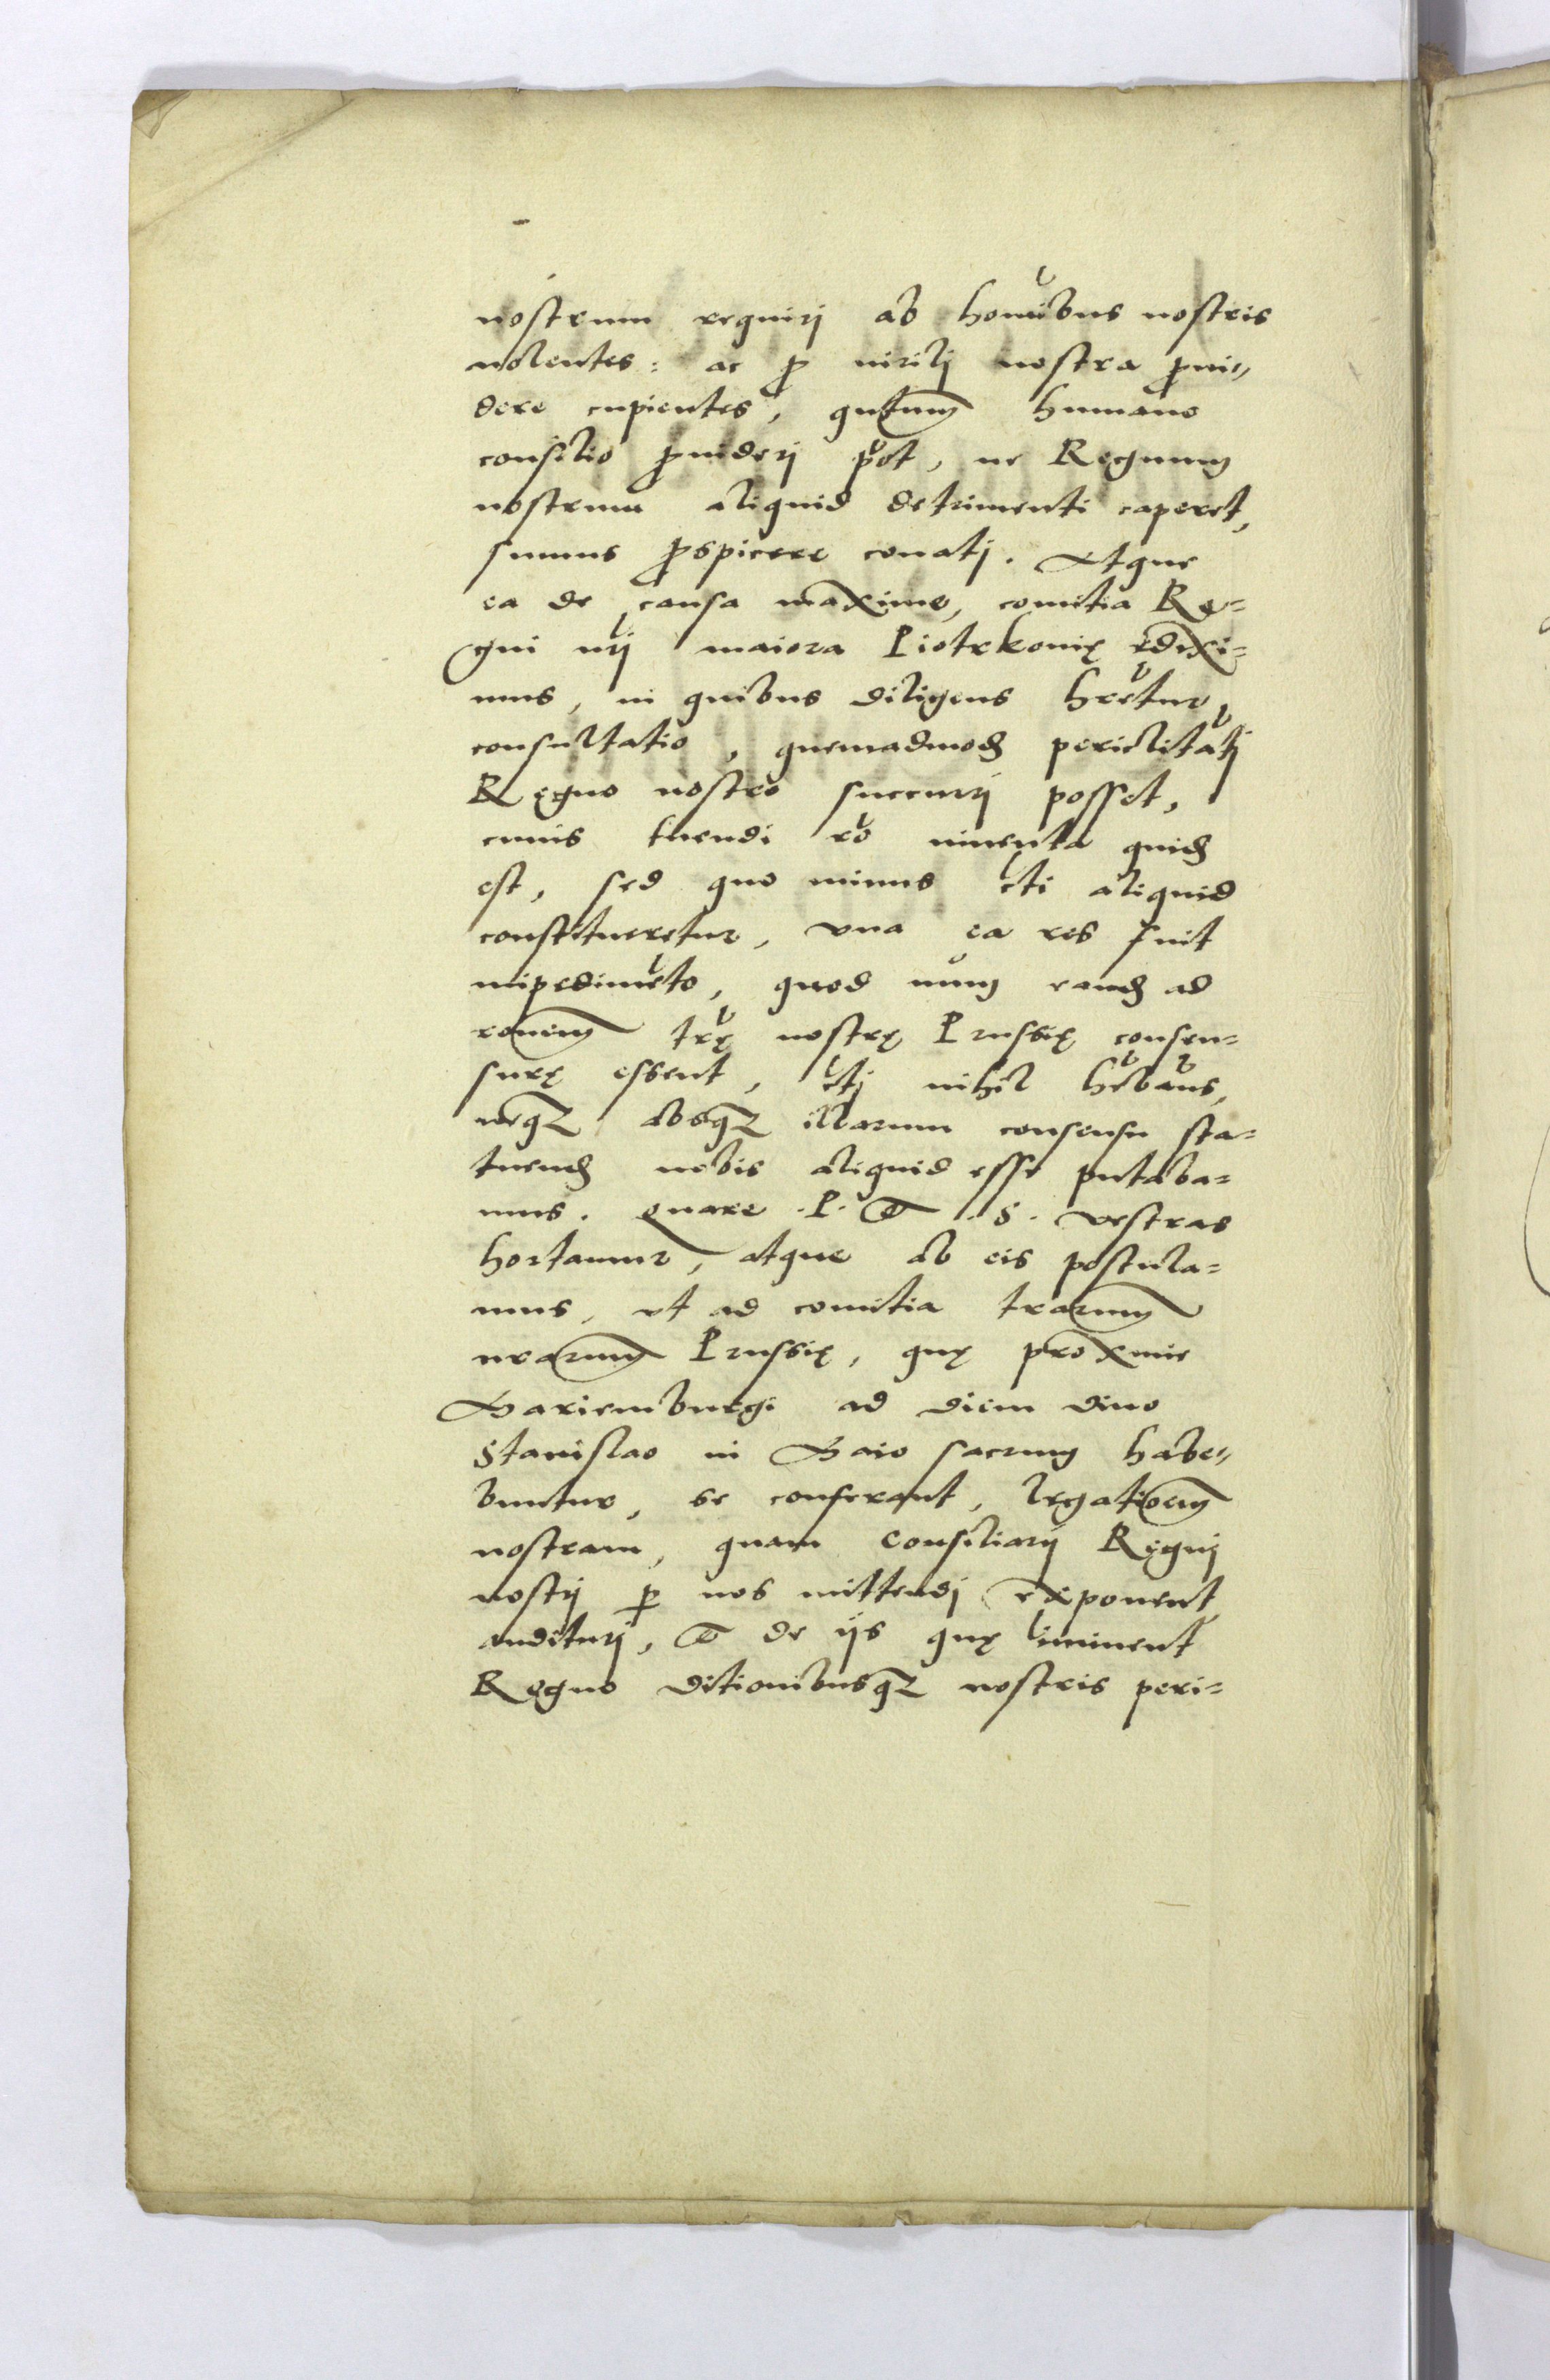 nostrum requirj ab hominibus nostris
nolentes: ac p virilj nostra pui„
dere cupientes, qntum humano
consilio puiderj pot, ne Regnum
nostrum aliquid detrimenti caperet,
sumus pspicere conatj. Atque
ea de causa maxime, comitia Re=
gni nrj maiora Piotrkouię edixi=
mus, in quibus diligens hretur
consultatio, quemadmod periclitatj
Regno nostro succurrj posset,
cuius tuendi ro inuenta quid
est, sed quo minus cti aliquid
constitueretur, vna ea res fuit
impedimeto, quod num eand ad
ronem trę nostrę Prussię consen=
surę essent, ctj nihil hebams,
neqz absqz illarum consensu sta=
tuend nobis aliquid esse putaba=
mus. Quare .P. et .S. vestras
hortamur, atque ab eis postula=
mus, vt ad comitia trarum
nrarum Prussię, quę proxime
Mariemburgi ad diem diuo
Stanislao in Maio sacrum habe„
buntur, se conferant, legationem
nostram, quam Consiliarij Regnj
nostrj p nos mittendj exponent
auditurj, et de ijs quę iminent
Regno ditionibusqz nostris peri=